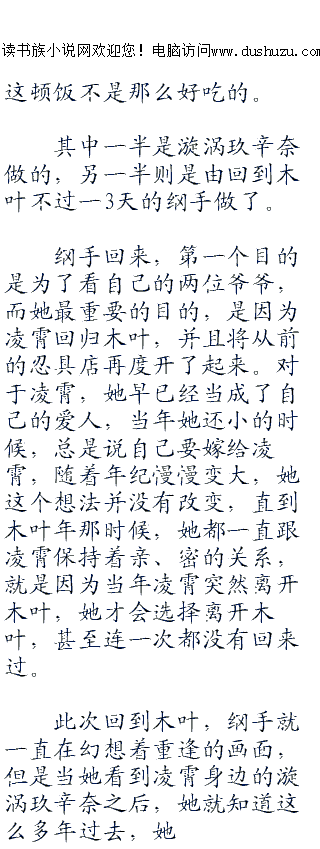 读书族小说网欢迎您！电脑访问www.dushuzu.com
这顿饭不是那么好吃的。
其中一半是漩涡玖辛奈
做的，另一半则是由回到木
叶不过一3天的纲手做了。
纲手回来，第一个目的
是为了看自己的两位爷爷，
而她最重要的目的，是因为
凌霄回归木叶，并且将从前
的忍具店再度开了起来。对
于凌霄，她早已经当成了自
己的爱人，当年她还小的时
候，总是说自己要嫁给凌
霄，随着年纪慢慢变大，她
这个想法并没有改变，直到
木叶年那时候，她都一直跟
凌霄保持着亲、密的关系，
就是因为当年凌霄突然离开
木叶，她才会选择离开木
叶，甚至连一次都没有回来
过。
此次回到木叶，纲手就
一直在幻想着重逢的画面，
但是当她看到凌霄身边的漩
涡玖辛奈之后，她就知道这
么多年过去，她